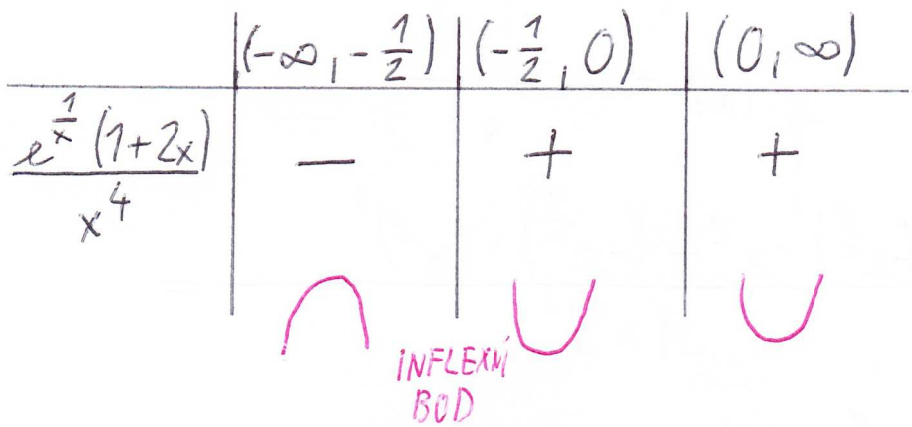 (-∞, -1/2) (-1/2, 0) (0, ∞)
e^(1/x) (1+2x) / x^4 − + +
INFLEXNÍ
BOD